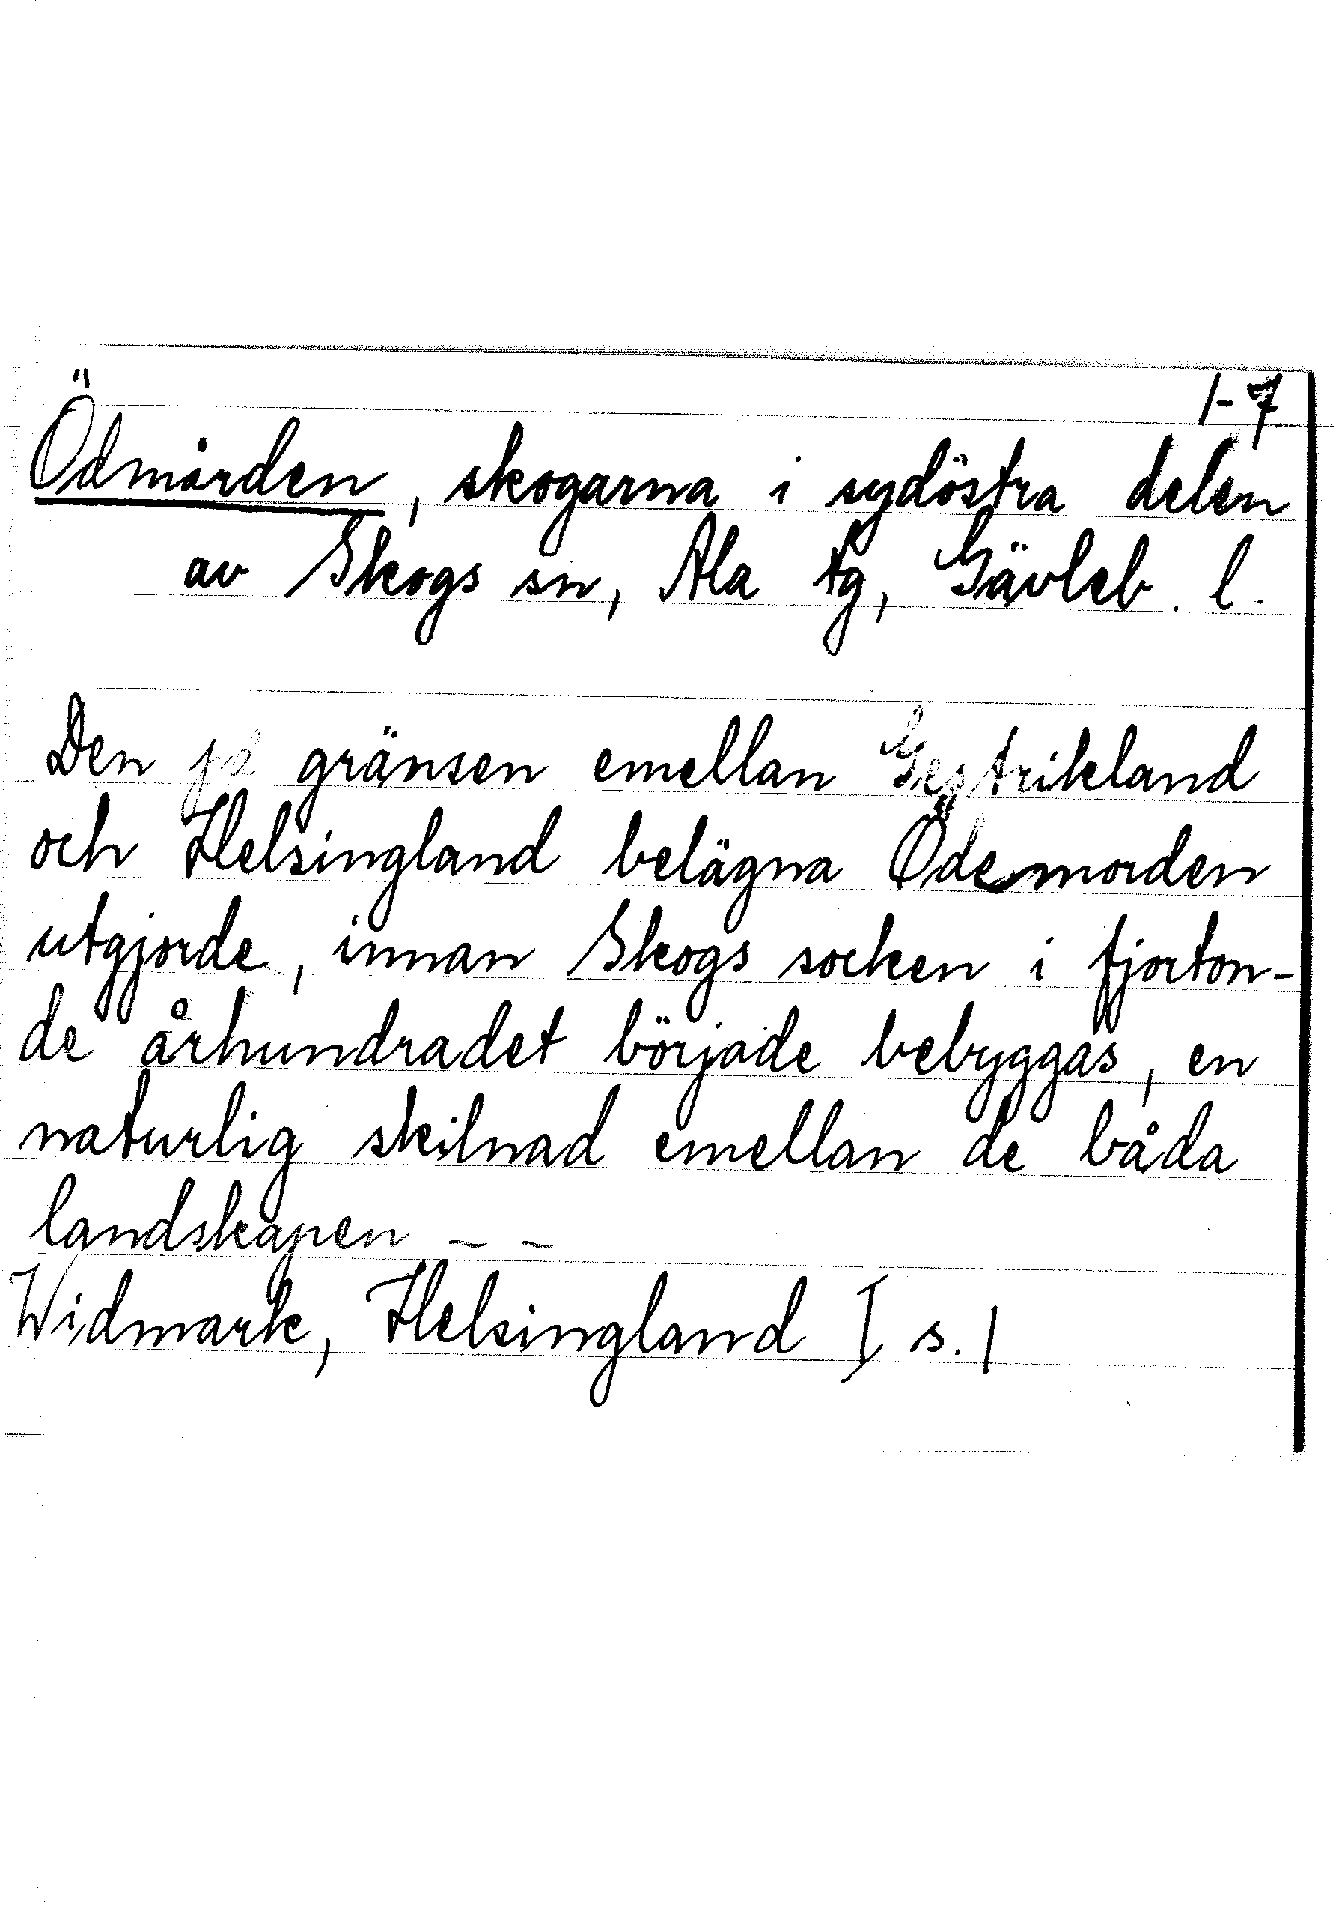 1-7
Ödmården, skogarna i sydöstra delen
av Skogs sn, Ala tg, Gävleb. l.
Den på gränsen emellan Gestrikland
och Helsingland belägna Ödemorden
utgjorde, innan Skogs socken i fjorton-
de århundradet började bebyggas, en
naturlig skilnad emellan de båda
landskapen – –
Widmark, Helsingland I s. 1